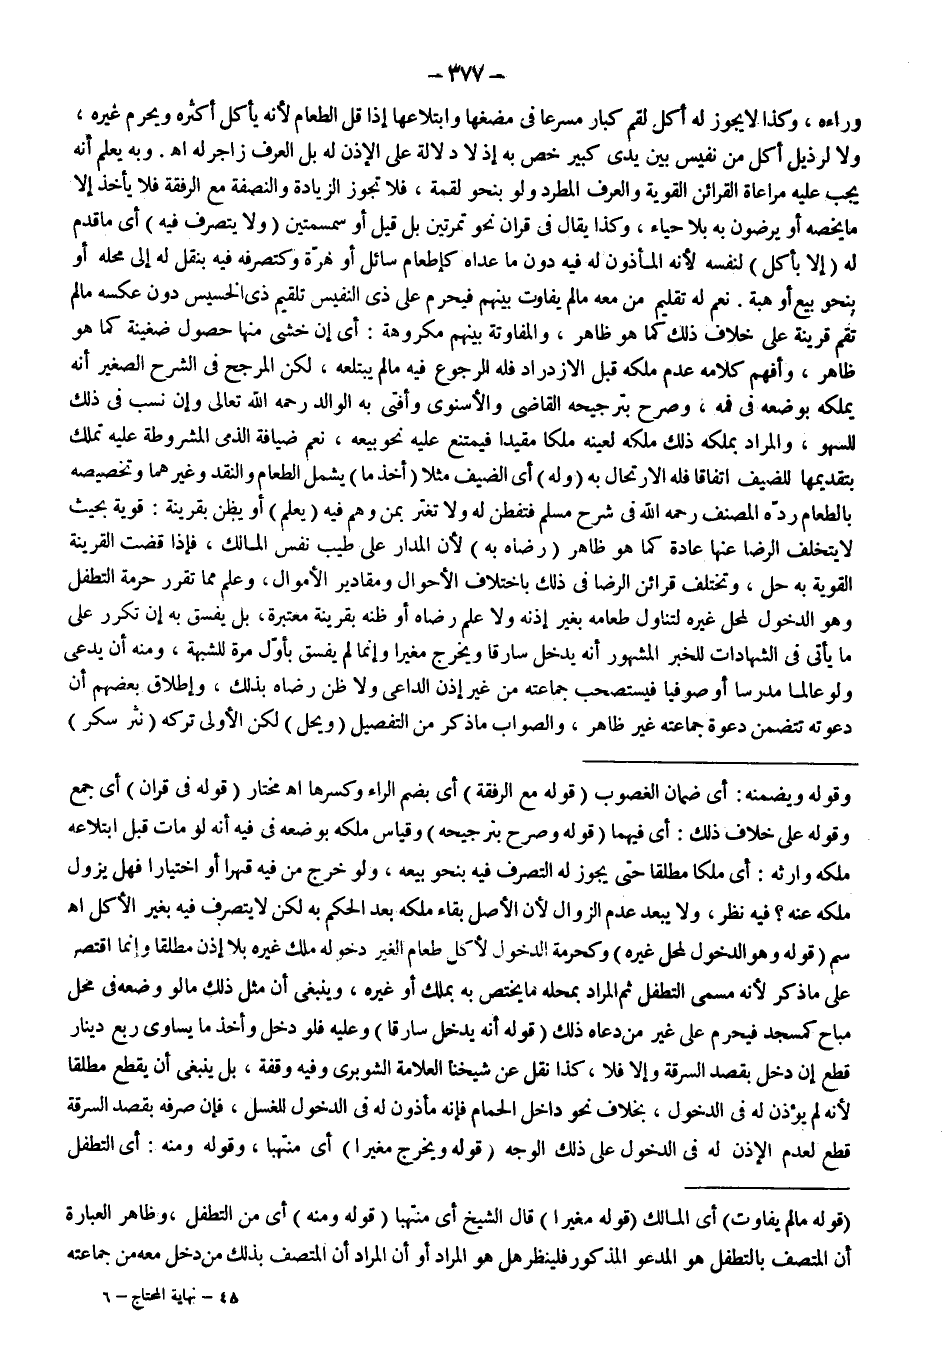 – ٣٧٧ –
وراءه ، وكذا لايجوز له أكل لقم كبار مسرعا فى مضغها وابتلاعها إذا قل الطعام لأنه يأكل أكثره ويحرم غيره ،
ولا لرذيل أكل من نفيس بين يدى كبير خص به إذ لا دلالة على الإذن له بل العرف زاجر له اه . وبه يعلم أنه
يجب عليه مراعاة القرائن القوية والعرف المطرد ولو بنحو لقمة ، فلا تجوز الزيادة والنصفة مع الرفقة فلا يأخذ إلا
مايخصه أو يرضون به بلا حياء ، وكذا يقال فى قران نحو تمرتين بل قيل أو سمسمتين ( ولا يتصرف فيه ) أى ماقدم
له ( إلا بأكل ) لنفسه لأنه المأذون له فيه دون ما عداه كإطعام سائل أو هرّة وكتصرفه فيه بنقل له إلى محله أو
بنحو بيع أو هبة . نعم له تقليم من معه مالم يفاوت بينهم فيحرم على ذى النفيس تلقيم ذى الخسيس دون عكسه مالم
تقم قرينة على خلاف ذلك كما هو ظاهر ، والمفاوتة بينهم مكروهة : أى إن خشى منها حصول ضغينة كما هو
ظاهر ، وأفهم كلامه عدم ملكه قبل الازدراد فله الرجوع فيه مالم يبتلعه ، لكن المرجح فى الشرح الصغير أنه
يملكه بوضعه فى فمه ، وصرح بترجيحه القاضى والأسنوى وأفتى به الوالد رحمه الله تعالى وإن نسب فى ذلك
للسهو ، والمراد بملكه ذلك ملكه لعينه ملكا مقيدا فيمتنع عليه نحو بيعه ، نعم ضيافة الذمى المشروطة عليه تملك
بتقديمها للضيف اتفاقا فله الارتحال به ( وله ) أى الضيف مثلا ( أخذ ما ) يشمل الطعام والنقد وغيرهما وتخصيصه
بالطعام ردّه المصنف رحمه الله فى شرح مسلم فتفطن له ولا تغتر بمن وهم فيه ( يعلم ) أو يظن بقرينة : قوية بحيث
لايتخلف الرضا عنها عادة كما هو ظاهر ( رضاه به ) لأن المدار على طيب نفس المالك ، فإذا قضت القرينة
القوية به حل ، وتختلف قرائن الرضا فى ذلك باختلاف الأحوال ومقادير الأموال ، وعلم مما تقرر حرمة التطفل
وهو الدخول لمحل غيره لتناول طعامه بغير إذنه ولا علم رضاه أو ظنه بقرينة معتبرة ، بل يفسق به إن تكرر على
ما يأتى فى الشهادات للخبر المشهور أنه يدخل سارقا ويخرج مغيرا وإنما لم يفسق بأوّل مرة للشبهة ، ومنه أن يدعى
ولو عالما مدرسا أو صوفيا فيستصحب جماعته من غير إذن الداعى ولا ظن رضاه بذلك ، وإطلاق بعضهم أن
دعوته تتضمن دعوة جماعته غير ظاهر ، والصواب ماذكر من التفصيل ( ويحل ) لكن الأولى تركه ( نثر سكر )
وقوله ويضمنه : أى ضمان الغصوب ( قوله مع الرفقة ) أى بضم الراء وكسرها اه مختار ( قوله فى قران ) أى جمع
وقوله على خلاف ذلك : أى فيهما ( قوله وصرح بترجيحه ) وقياس ملكه بوضعه فى فيه أنه لو مات قبل ابتلاعه
ملكه وارثه : أى ملكا مطلقا حتى يجوز له التصرف فيه بنحو بيعه ، ولو خرج من فيه قهرا أو اختيارا فهل يزول
ملكه عنه ؟ فيه نظر ، ولا يبعد عدم الزوال لأن الأصل بقاء ملكه بعد الحكم به لكن لايتصرف فيه بغير الأكل اه
سم ( قوله وهو الدخول لمحل غيره ) وكحرمة الدخول لأكل طعام الغير دخوله ملك غيره بلا إذن مطلقا وإنما اقتصر
على ماذكر لأنه مسمى التطفل ثم المراد بمحله مايختص به بملك أو غيره ، وينبغى أن مثل ذلك مالو وضعه فى محل
مباح كمسجد فيحرم على غير من دعاه ذلك ( قوله أنه يدخل سارقا ) وعليه فلو دخل وأخذ ما يساوى ربع دينار
قطع إن دخل بقصد السرقة وإلا فلا ، كذا نقل عن شيخنا العلامة الشوبرى وفيه وقفة ، بل ينبغى أن يقطع مطلقا
لأنه لم يؤذن له فى الدخول ، بخلاف نحو داخل الحمام فإنه مأذون له فى الدخول للغسل ، فإن صرفه بقصد السرقة
قطع لعدم الإذن له فى الدخول على ذلك الوجه ( قوله ويخرج مغيرا ) أى منتهبا ، وقوله ومنه : أى التطفل
( قوله مالم يفاوت ) أى المالك ( قوله مغيرا ) قال الشيخ أى منتهبا ( قوله ومنه ) أى من التطفل ، وظاهر العبارة
أن المتصف بالتطفل هو المدعو المذكور فلينظر هل هو المراد أو أن المراد أن المتصف بذلك من دخل معه من جماعته
٤٨ – نهاية المحتاج – ٦